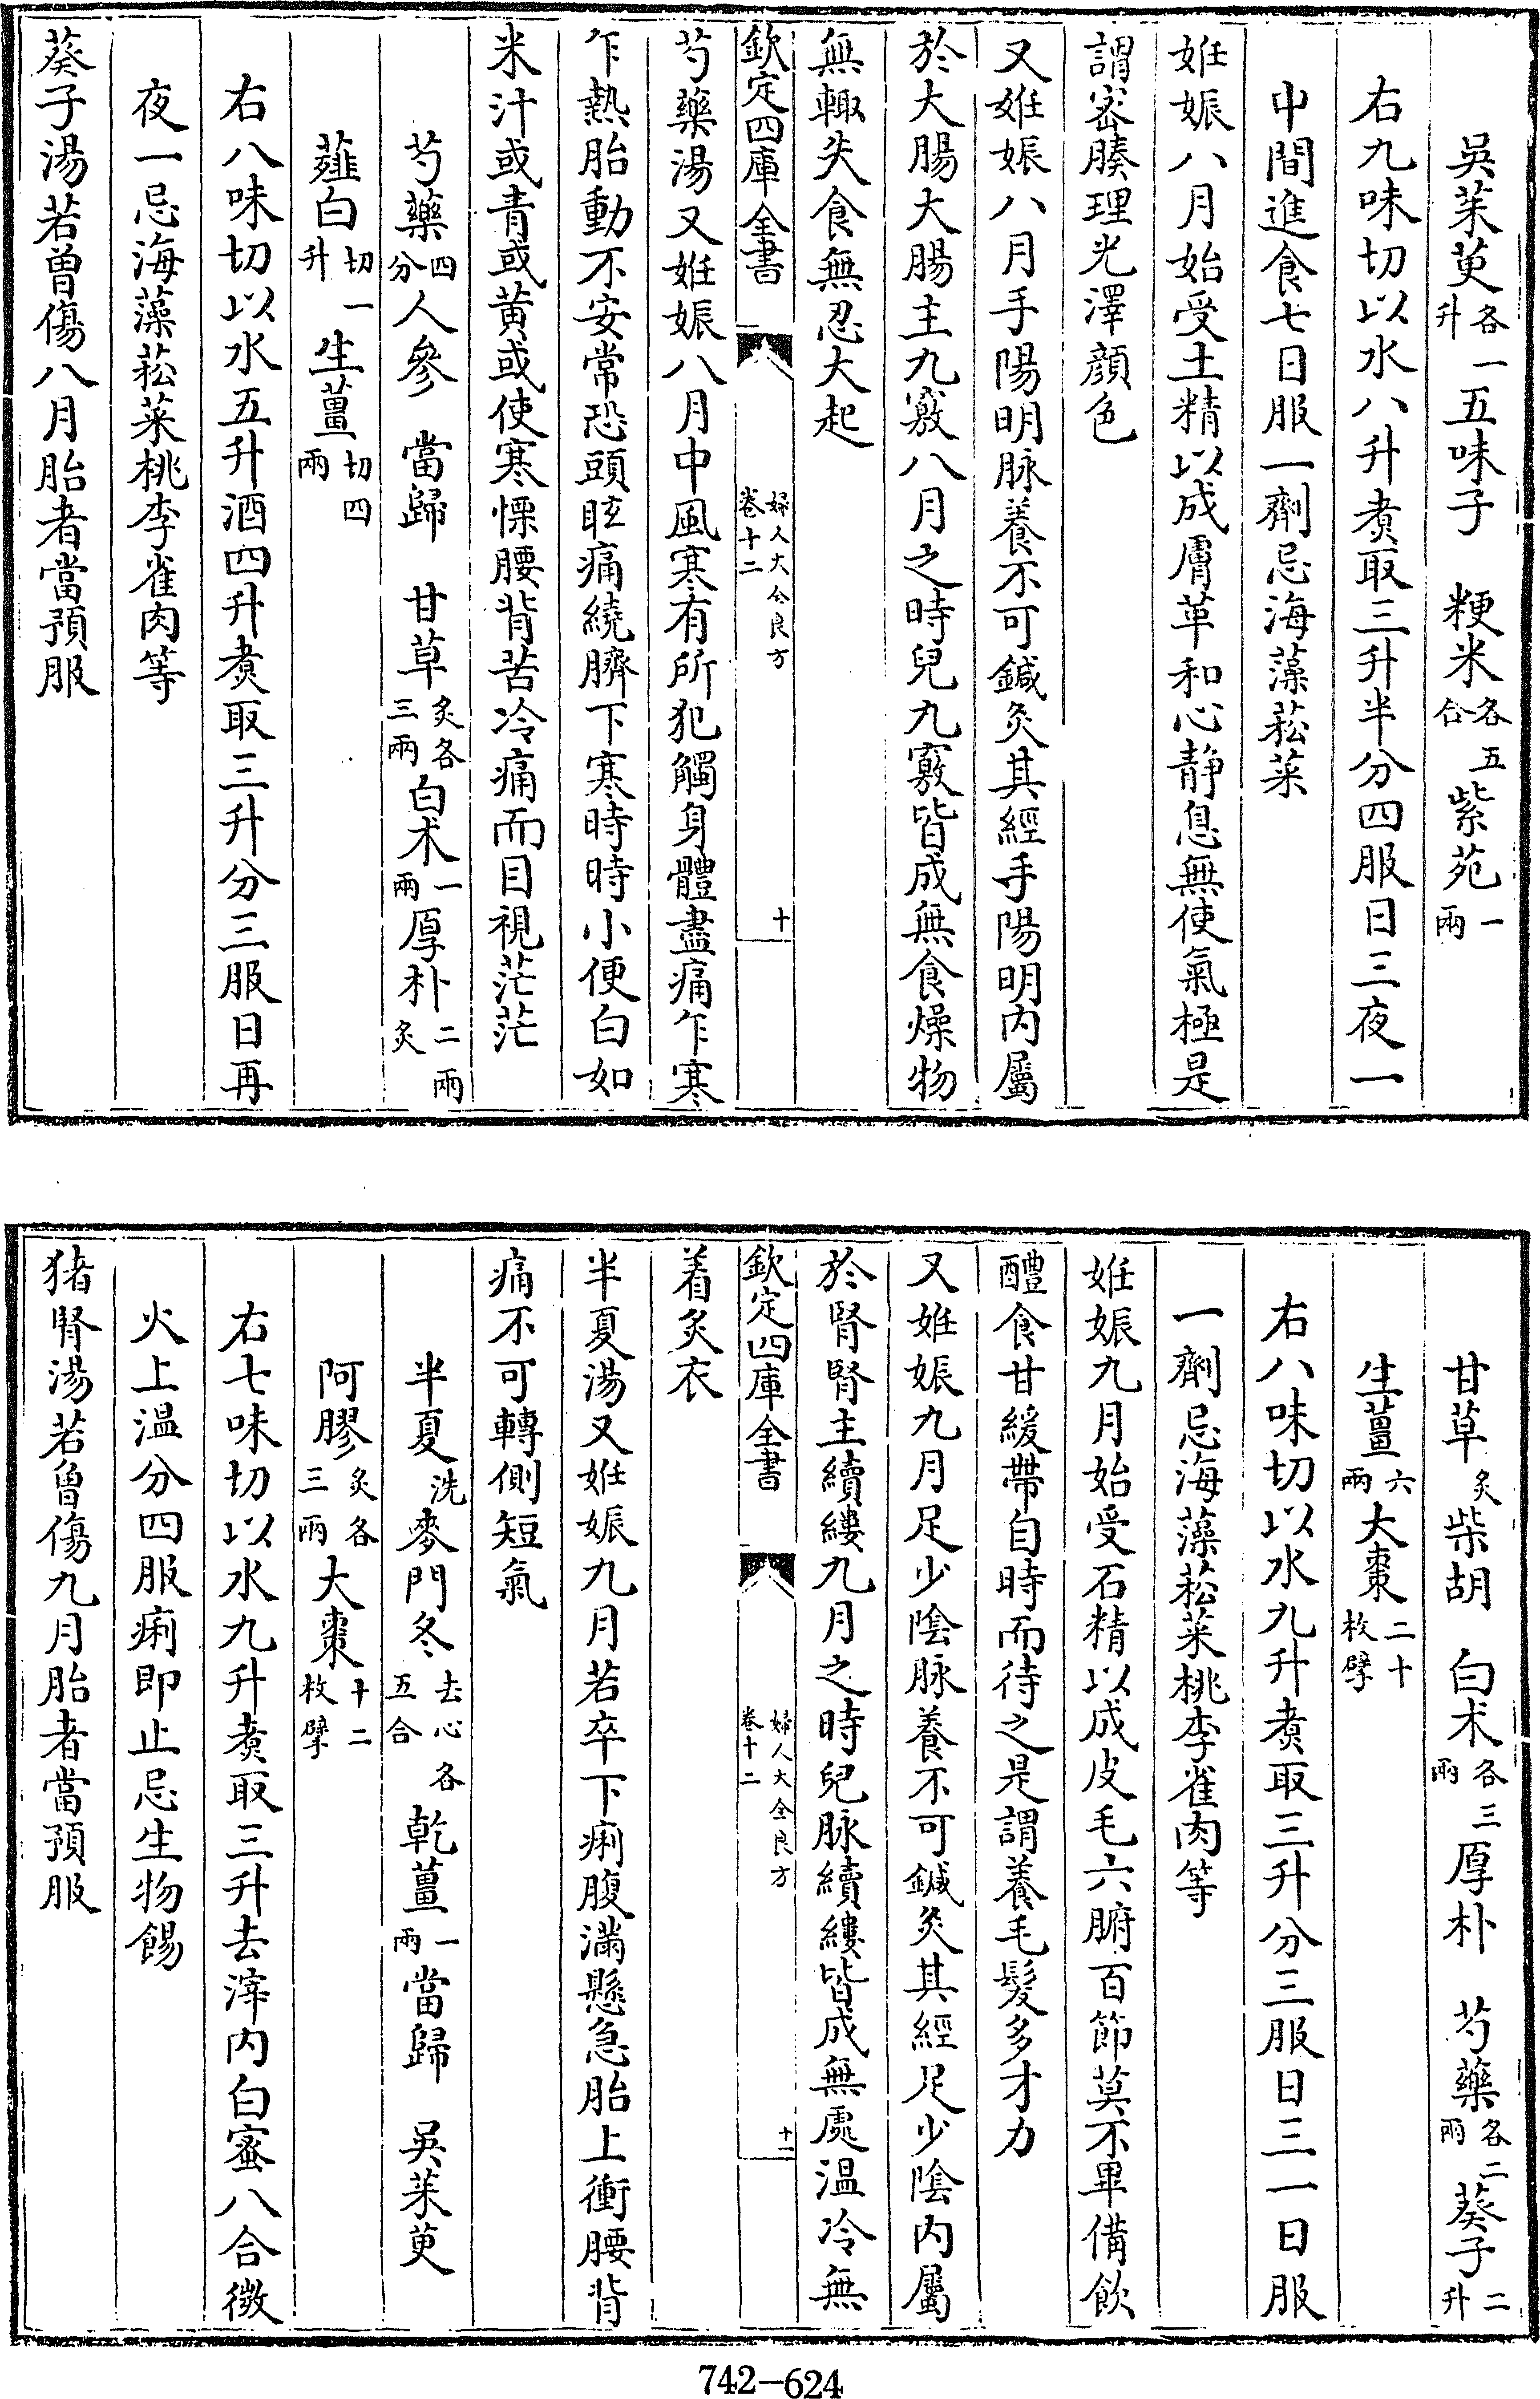 吳茱萸各一升五味子　粳米各五合紫苑一兩
右九味切以水八升煮取三升半分四服日三夜一
中間進食七日服一劑忌海藻菘菜
姙娠八月始受土精以成膚革和心靜息無使氣極是
謂密腠理光澤顏色
又姙娠八月手陽明脉養不可鍼灸其經手陽明内屬
於大腸大腸主九竅八月之時兒九竅皆成無食燥物
無輙失食無忍大起
欽定四庫全書　婦人大全良方卷十二　十
芍藥湯又姙娠八月中風寒有所犯觸身體盡痛乍寒
乍熱胎動不安常恐頭眩痛繞臍下寒時時小便白如
米汁或青或黃或使寒慄腰背苦冷痛而目視茫茫
芍藥四分人參　當歸　甘草炙各三兩白术一兩厚朴二兩炙
薤白切一升生薑切四兩
右八味切以水五升酒四升煮取三升分三服日再
夜一忌海藻菘菜桃李雀肉等
葵子湯若曾傷八月胎者當預服
甘草炙柴胡　白术各三兩厚朴　芍藥各二兩葵子二升
生薑六兩大棗二十枚擘
右八味切以水九升煮取三升分三服日三一日服
一劑忌海藻菘菜桃李雀肉等
姙娠九月始受石精以成皮毛六腑百節莫不畢備飲
醴食甘緩帶自時而待之是謂養毛髮多才力
又姙娠九月足少陰脉養不可鍼灸其經足少陰内屬
於腎腎主續縷九月之時兒脉續縷皆成無處温冷無
着炙衣
欽定四庫全書　婦人大全良方卷十二　十一
半夏湯又姙娠九月若卒下痢腹滿懸急胎上衝腰背
痛不可轉側短氣
半夏洗麥門冬去心各五合乾薑一兩當歸　吳茱萸
阿膠炙各三兩大棗十二枚擘
右七味切以水九升煮取三升去滓内白蜜八合微
火上温分四服痢即止忌生物餳
猪腎湯若曾傷九月胎者當預服
742-624